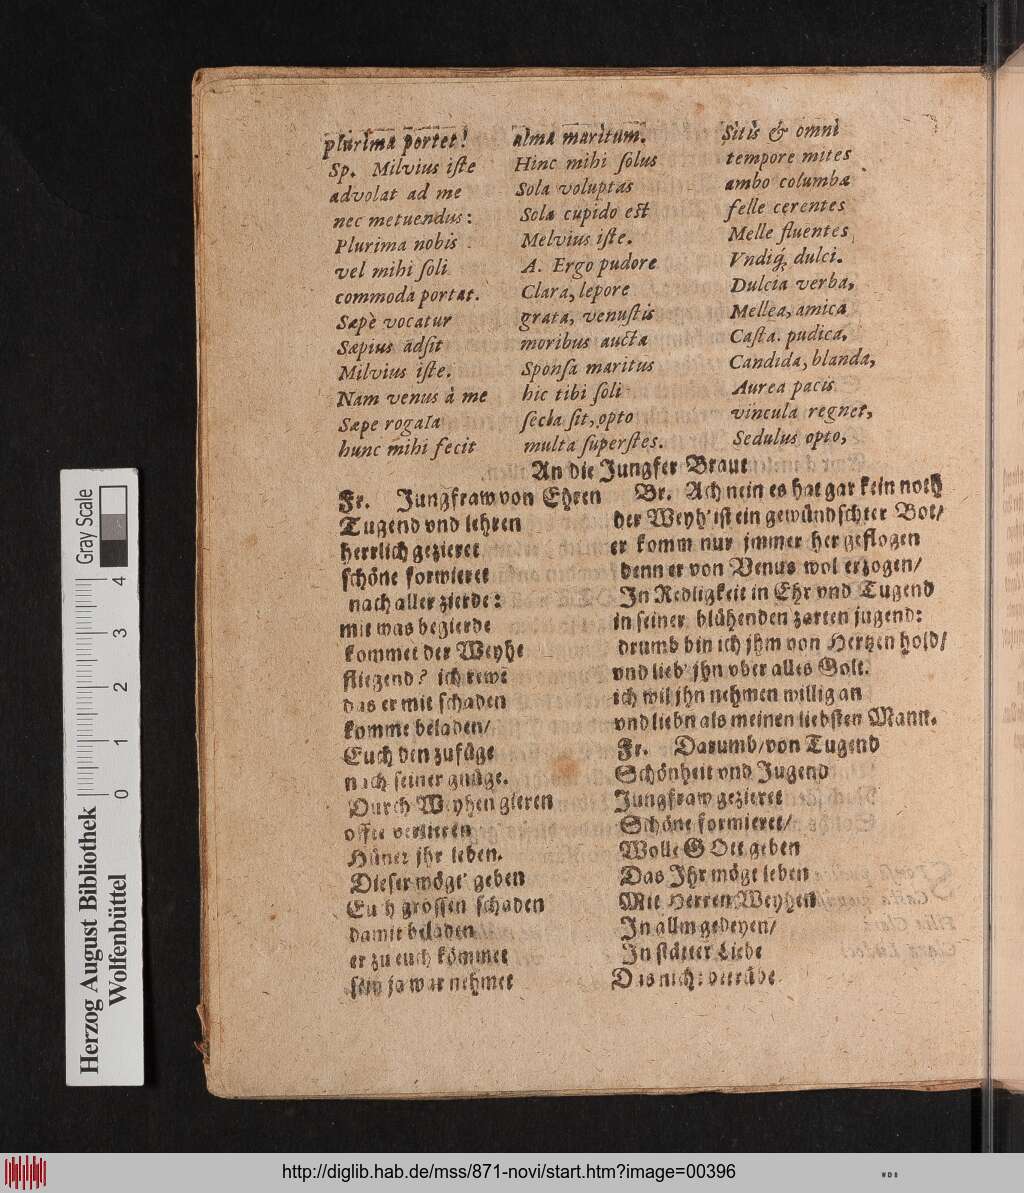 plurima portet!
Sp. Milvius iſte
advolat ad me
nec metuendus:
Plurima nobis
vel mihi ſoli
commoda portat.
Sæpè vocatur
Sæpius adſit
Milvius iſte.
Nam venus à me
Sæpe rogata
hunc mihi fecit
alma maritum.
Hinc mihi ſolus
Sola voluptas
Sola cupido eſt
Melvius iſte.
A. Ergo pudore
Clara, lepore
grata, venuſtis
moribus aucta
Sponſa maritus
hic tibi ſoli
ſecla ſit, opto
multa ſuperſtes.
Sitis & omni
tempore mites
ambo columbæ
felle cerentes
Melle fluentes
Vndiq; dulci.
Dulcia verba,
Mellea, amica
Caſta. pudica,
Candida, blanda,
Aurea pacis
vincula regnet,
Sedulus opto,
An die Jungfer Braut
Fr. Jungfraw von Ehren
Tugend vnd lehren
herrlich gezieret
ſchöne formieret
nach aller zierde:
mit was begierde
kommet der Weyhe
fliegend? ich rewe
das er mit ſchaden
komme beladen/
Euch den zufüge
nach ſeiner gnüge.
Durch Weyhen gieren
offte verlieren
Hüner jhr leben.
Dieſer mögt' geben
Euch groſſen ſchaden
damit beladen
er zu euch kömmet
ſein ja war nehmet
Br. Ach nein es hat gar kein noth
der Weyh' iſt ein gewündſchter Bot/
er komm nur jmmer her geflogen
denn er von Venus wol erzogen/
In Redligkeit in Ehr vnd Tugend
in ſeiner blühenden zarten jugend:
drumb bin ich jhm von Hertzen hold/
vnd lieb' jhn vber alles Golt.
ich wil jhn nehmen willig an
vnd liebn als meinen liebſten Mann.
Fr. Darumb/von Tugend
Schönheit vnd Jugend
Jungfraw gezieret
Schöne formieret/
Wolle GOtt geben
Das Ihr mögt leben
Mit Herren Weyhen
In allm gedeyen/
In ſtätter Liebe
Das nicht betrübe
Gray Scale
0 1 2 3 4
Herzog August Bibliothek
Wolfenbüttel
http://diglib.hab.de/mss/871-novi/start.htm?image=00396
WDB